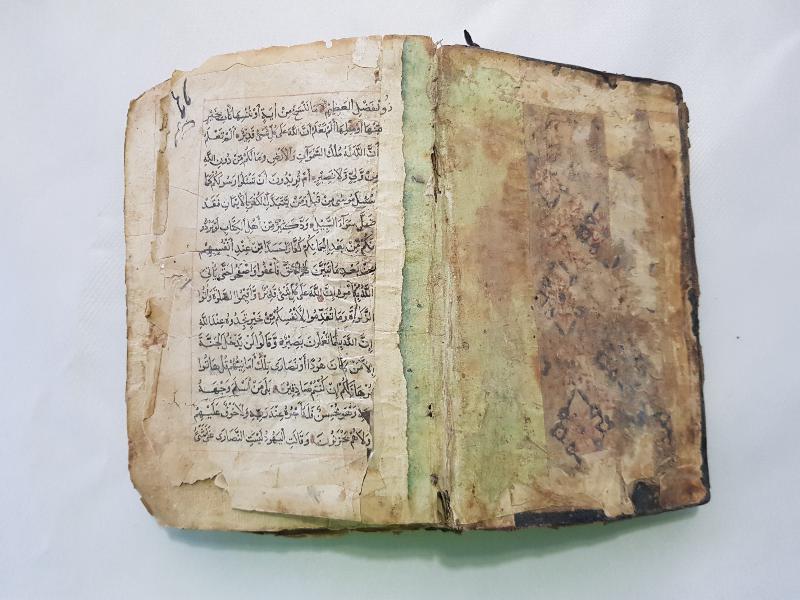 ذو الفضل العظيم ما ننسخ من آية أو ننسها نأت بخير
منها أو مثلها ألم تعلم أن الله على كل شيء قدير ألم تعلم
أن الله له ملك السموات والأرض وما لكم من دون الله
من ولي ولا نصير أم تريدون أن تسئلوا رسولكم كما
سئل موسى من قبل ومن يتبدل الكفر بالإيمان فقد
ضل سواء السبيل ود كثير من أهل الكتاب لو يردو
نكم من بعد إيمانكم كفارا حسدا من عند أنفسهم
من بعد ما تبين لهم الحق فاعفوا واصفحوا حتى يأتي
الله بأمره إن الله على كل شيء قدير وأقيموا الصلوة وآتوا
الزكوة وما تقدموا لأنفسكم من خير تجدوه عند الله
إن الله بما تعملون بصير وقالوا لن يدخل الجنة
إلا من كان هودا أو نصارى تلك أمانيهم قل هاتوا
برهانكم إن كنتم صادقين بلى من أسلم وجهه
لله وهو محسن فله أجره عند ربه ولا خوف عليهم
ولا هم يحزنون وقالت اليهود ليست النصارى على شيء